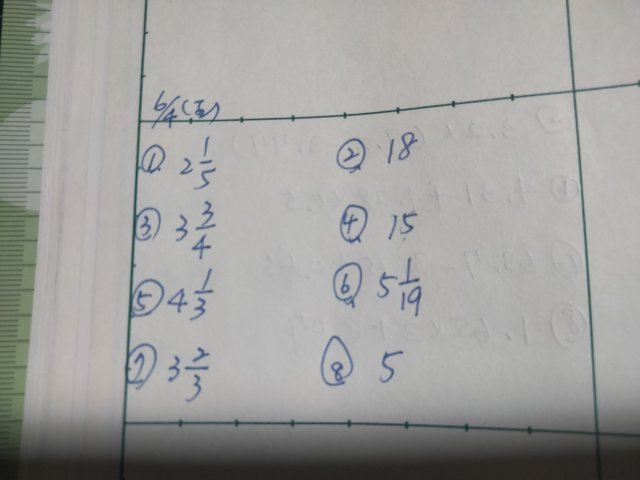 6/4(五)
① 2 1/5 ② 18
③ 3 3/4 ④ 15
⑤ 4 1/3 ⑥ 5 1/19
⑦ 3 2/3 ⑧ 5